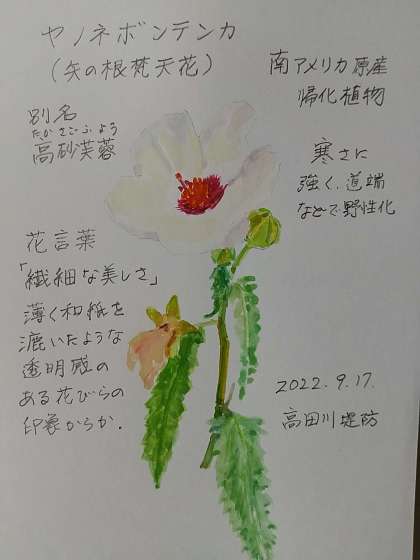 ヤノネボンテンカ
(矢の根梵天花)
別名
たかさごふよう
高砂芙蓉
南アメリカ原産
帰化植物
寒さに
強く、道端
などで野性化
花言葉
「繊細な美しさ」
薄く和紙を
漉いたような
透明感の
ある花びらの
印象からか.
2022.9.17.
高田川堤防